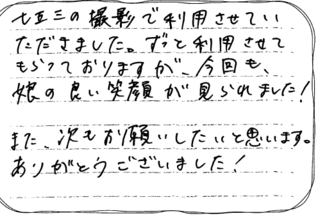 七五三の撮影で利用させてい
ただきました。ずっと利用させて
もらっておりますが、今回も、
娘の良い笑顔が見られました!
また、次もお願いしたいと思います。
ありがとうございました!